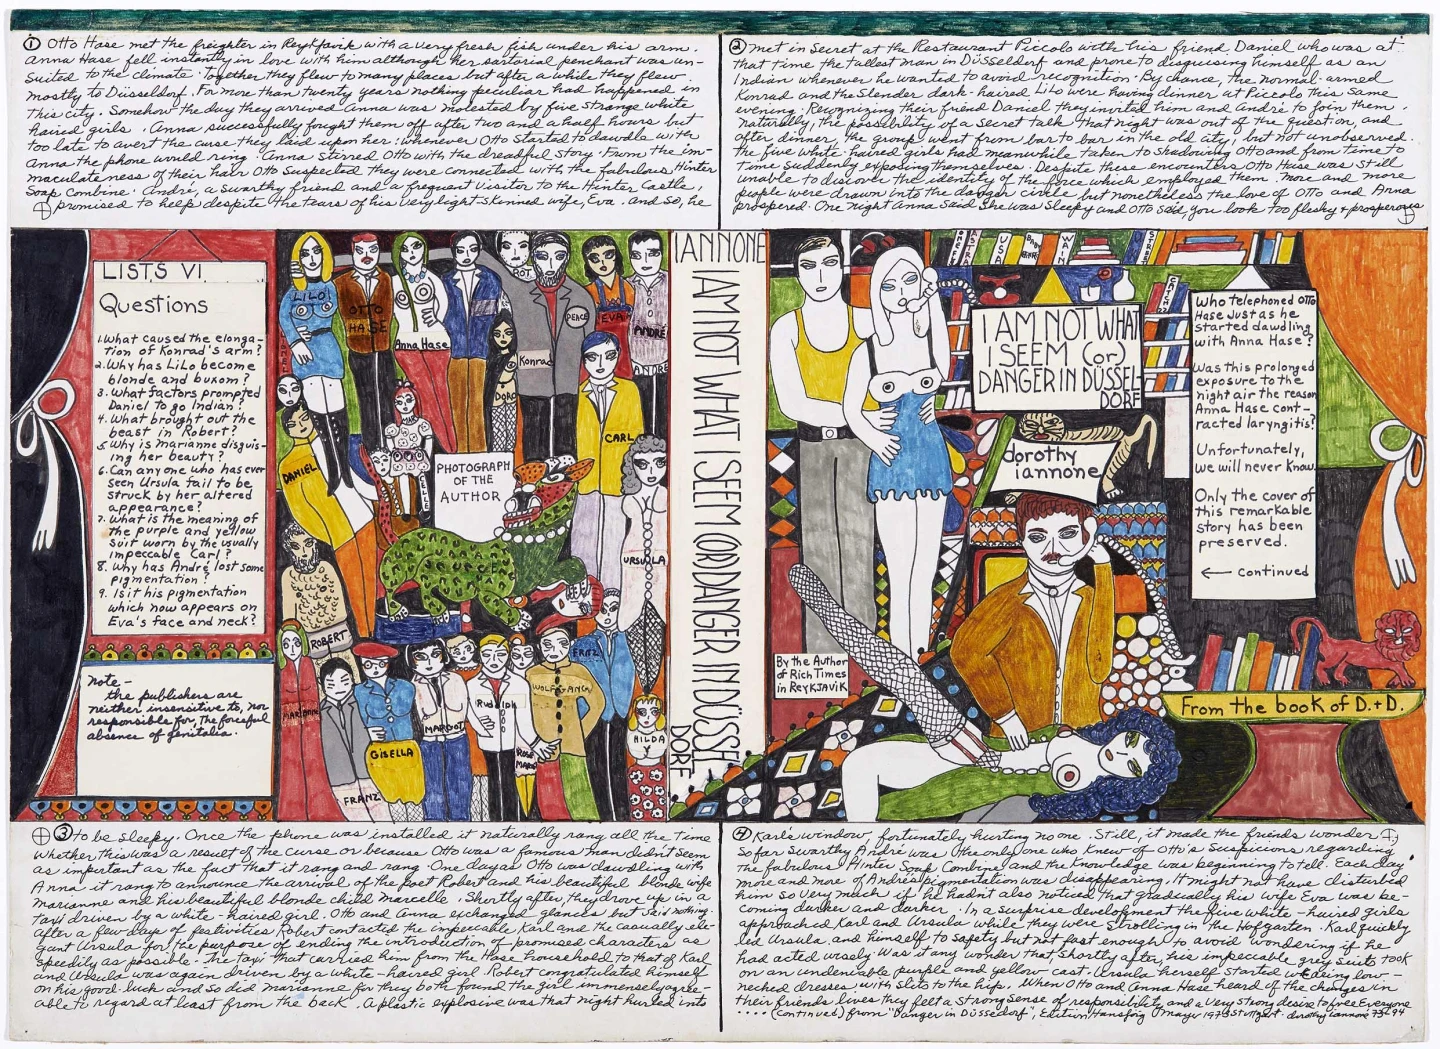 ① Otto Hase met the freighter in Reykjavik with a very fresh fish under his arm.
Anna Hase fell instantly in love with him although her sartorial penchant was un-
suited to the climate. Together they flew to many places but after a while they flew
mostly to Düsseldorf. For more than twenty years nothing peculiar had happened in
this city. Somehow the day they arrived Anna was molested by five strange white
haired girls. Anna successfully fought them off after two and a half hours but
too late to avert the curse they laid upon her: whenever Otto started to dawdle with
Anna the phone would ring. Anna stirred Otto with the dreadful story. From the im-
maculateness of their hair Otto suspected they were connected with the fabulous Hinter
Soap Combine. André, a swarthy friend and a frequent visitor to the Hinter Castle,
promised to help despite the tears of his very light-skinned wife, Eva. And so, he
② met in secret at the Restaurant Piccolo with his friend Daniel who was at
that time the tallest man in Düsseldorf and prone to disguising himself as an
Indian whenever he wanted to avoid recognition. By chance, the normal-armed
Konrad and the slender dark-haired Lilo were having dinner at Piccolo this same
evening. Recognizing their friend Daniel they invited him and André to join them.
Naturally, the possibility of a secret talk that night was out of the question, and
after dinner the group went from bar to bar in the old city, but not unobserved.
The five white haired girls had meanwhile taken to shadowing Otto and from time to
time suddenly exposing themselves. Despite these encounters Otto Hase was still
unable to discover the identity of the force which employed them. More and more
people were drawn into the danger circle but nonetheless the love of Otto and Anna
prospered. One night Anna said she was sleepy and Otto said, you look too fleshy + prosperous
LISTS VI
Questions
1. What caused the elonga-
tion of Konrad's arm?
2. Why has Lilo become
blonde and buxom?
3. What factors prompted
Daniel to go Indian?
4. What brought out the
beast in Robert?
5. Why is Marianne disguis-
ing her beauty?
6. Can anyone who has ever
seen Ursula fail to be
struck by her altered
appearance?
7. What is the meaning of
the purple and yellow
suit worn by the usually
impeccable Carl?
8. Why has André lost some
pigmentation?
9. Is it his pigmentation
which now appears on
Eva's face and neck?
Note—
the publishers are
neither insensitive to, nor
responsible for, the forceful
absence of genitalia.
LILO
OTTO
HASE
Anna Hase
ROT
PEACE
EVA
ANDRÉ
ANDRE
Konrad
DORO
CARL
DANIEL
PHOTOGRAPH
OF THE
AUTHOR
URSULA
ROBERT
MARIANNE
GISELLA
FRANZ
MARGOT
Rudolph
ROSE
MARIE
WOLFGANG
FRITZ
HILDA
IANNONE
I AM NOT WHAT I SEEM (OR) DANGER IN DÜSSEL
DORF
I AM NOT WHAT
I SEEM (or)
DANGER IN DÜSSEL
DORF
dorothy
iannone
By the Author
of Rich Times
in Reykjavik
Who telephoned Otto
Hase just as he
started dawdling
with Anna Hase?
Was this prolonged
exposure to the
night air the reason
Anna Hase cont-
racted laryngitis?
Unfortunately,
we will never know.
Only the cover of
this remarkable
story has been
preserved.
← continued
From the book of D. + D.
③ to be sleepy. Once the phone was installed it naturally rang all the time
whether this was a result of the curse or because Otto was a famous man didn't seem
as important as the fact that it rang and rang. One day as Otto was dawdling with
Anna it rang to announce the arrival of the poet Robert and his beautiful blonde wife
Marianne and his beautiful blonde child Marcelle. Shortly after, they drove up in a
taxi driven by a white-haired girl. Otto and Anna exchanged glances but said nothing.
After a few days of festivities Robert contacted the impeccable Karl and the casually ele-
gant Ursula for the purpose of ending the introduction of promised characters as
speedily as possible. The taxi that carried him from the Hase household to that of Karl
and Ursula was again driven by a white-haired girl. Robert congratulated himself
on his good luck and so did Marianne for they both found the girl immensely agree-
able to regard at least from the back. A plastic explosive was that night hurled into
④ Karl's window, fortunately hurting no one. Still, it made the friends wonder.
So far swarthy André was the only one who knew of Otto's suspicions regarding
the fabulous Hinter Soap Combine and the knowledge was beginning to tell. Each day
more and more of André's pigmentation was disappearing. It might not have disturbed
him so very much if he hadn't also noticed that gradually his wife Eva was be-
coming darker and darker. In a surprise development the five white-haired girls
approached Karl and Ursula while they were strolling in the Hofgarten. Karl quickly
led Ursula and himself to safety but not fast enough to avoid wondering if he
had acted wisely. Was it any wonder that shortly after, his impeccable grey suits took
on an undeniable purple and yellow cast. Ursula herself started wearing low-
necked dresses with slits to the hip. When Otto and Anna Hase heard of the changes in
their friends lives they felt a strong sense of responsibility and a very strong desire to free everyone
.... (continued) from "Danger in Düsseldorf", Edition Hansjörg Mayer 1973 Stuttgart. dorothy iannone 73-94